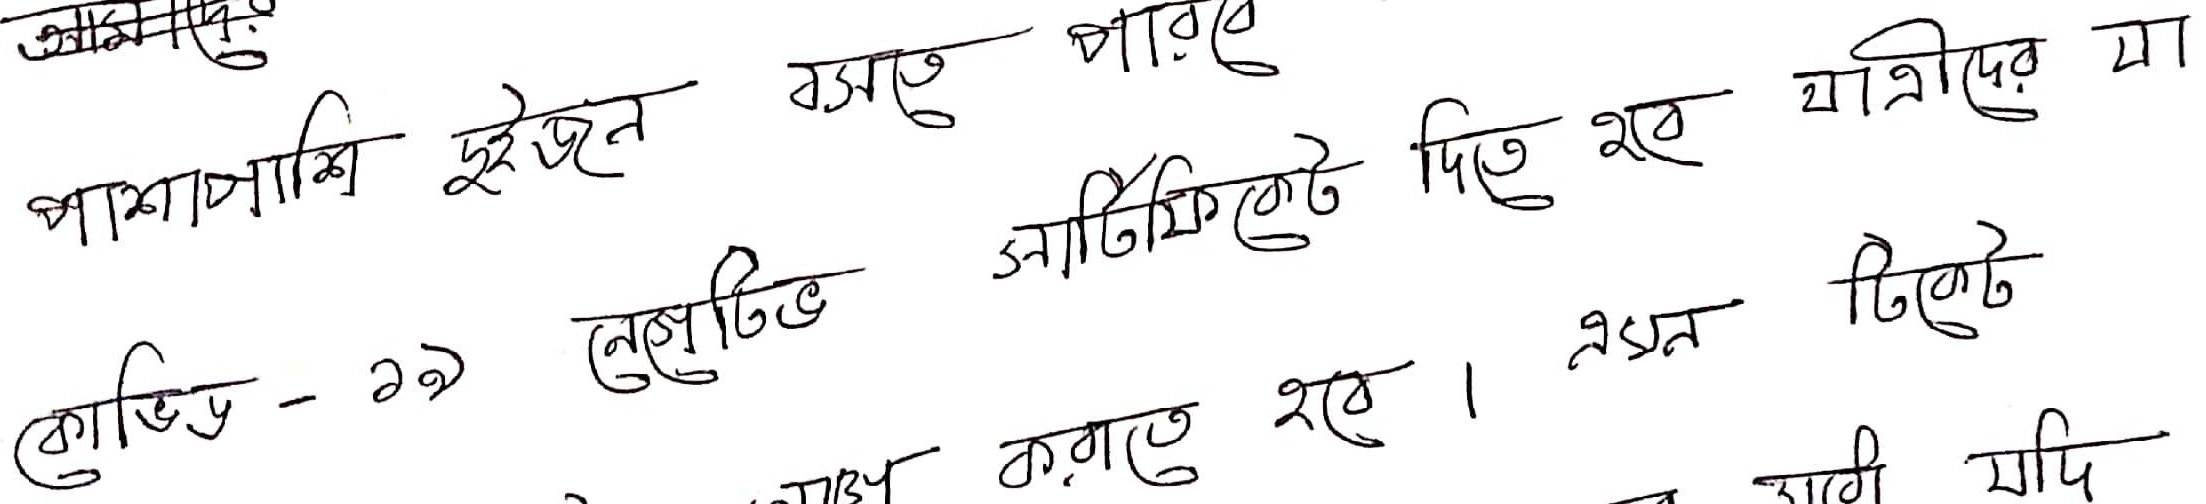 পাশাপাশি দুইজন বসতে পারবে
কোভিড - ১৯ নেগেটিভ সার্টিফিকেট দিতে হবে যাত্রীদের যা
করাতে হবে । এখন টিকেট
যদি